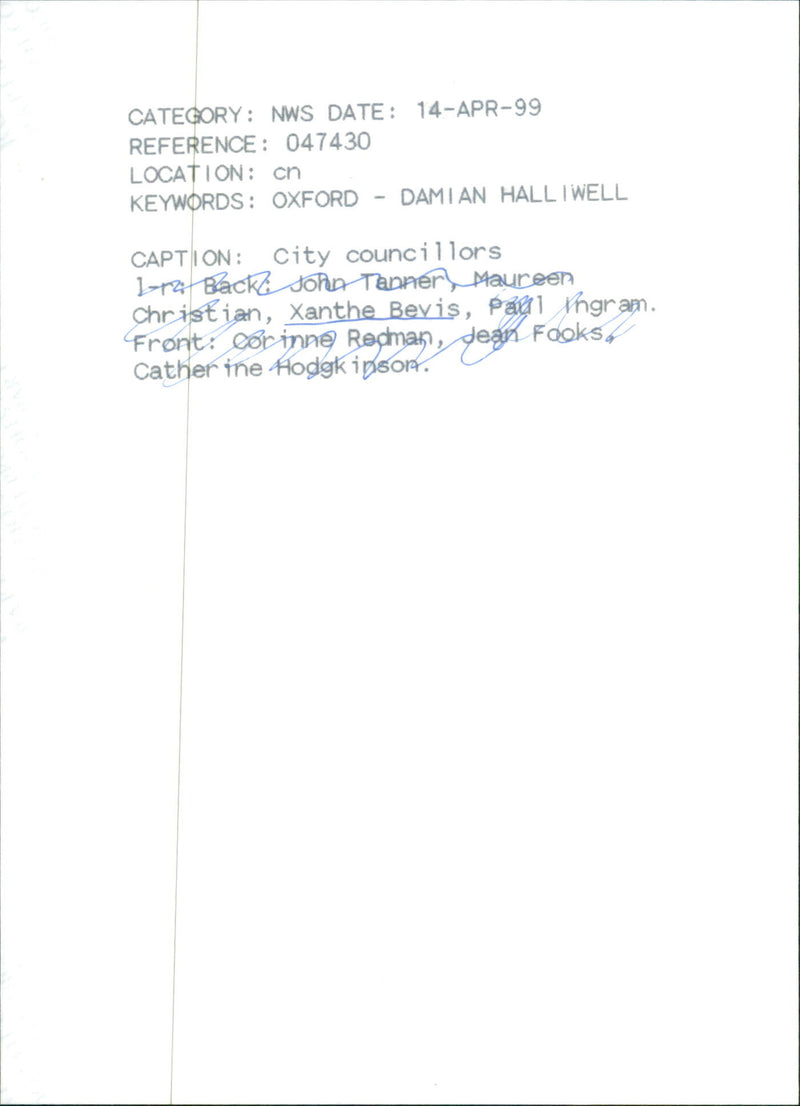 CATEGORY: NWS DATE: 14-APR-99
REFERENCE: 047430
LOCATION: cn
KEYWORDS: OXFORD - DAMIAN HALLIWELL
CAPTION: City councillors
l-r: Back: John Tanner, Maureen
Christian, Xanthe Bevis, Paul Ingram.
Front: Corinne Redman, Jean Fooks,
Catherine Hodgkinson.